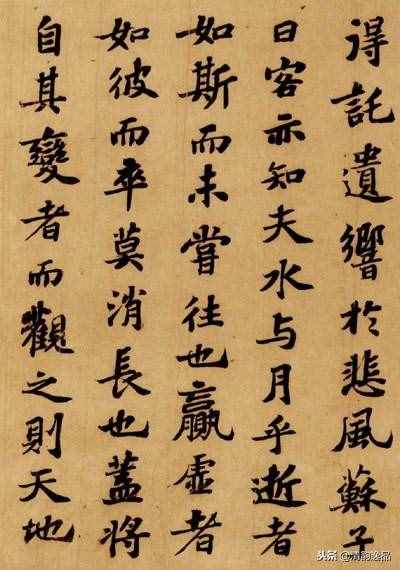 得託遺響於悲風蘇子
曰客亦知夫水与月乎逝者
如斯而未嘗往也贏虛者
如彼而卒莫消長也蓋將
自其變者而觀之則天地
头条 @清韵逸品